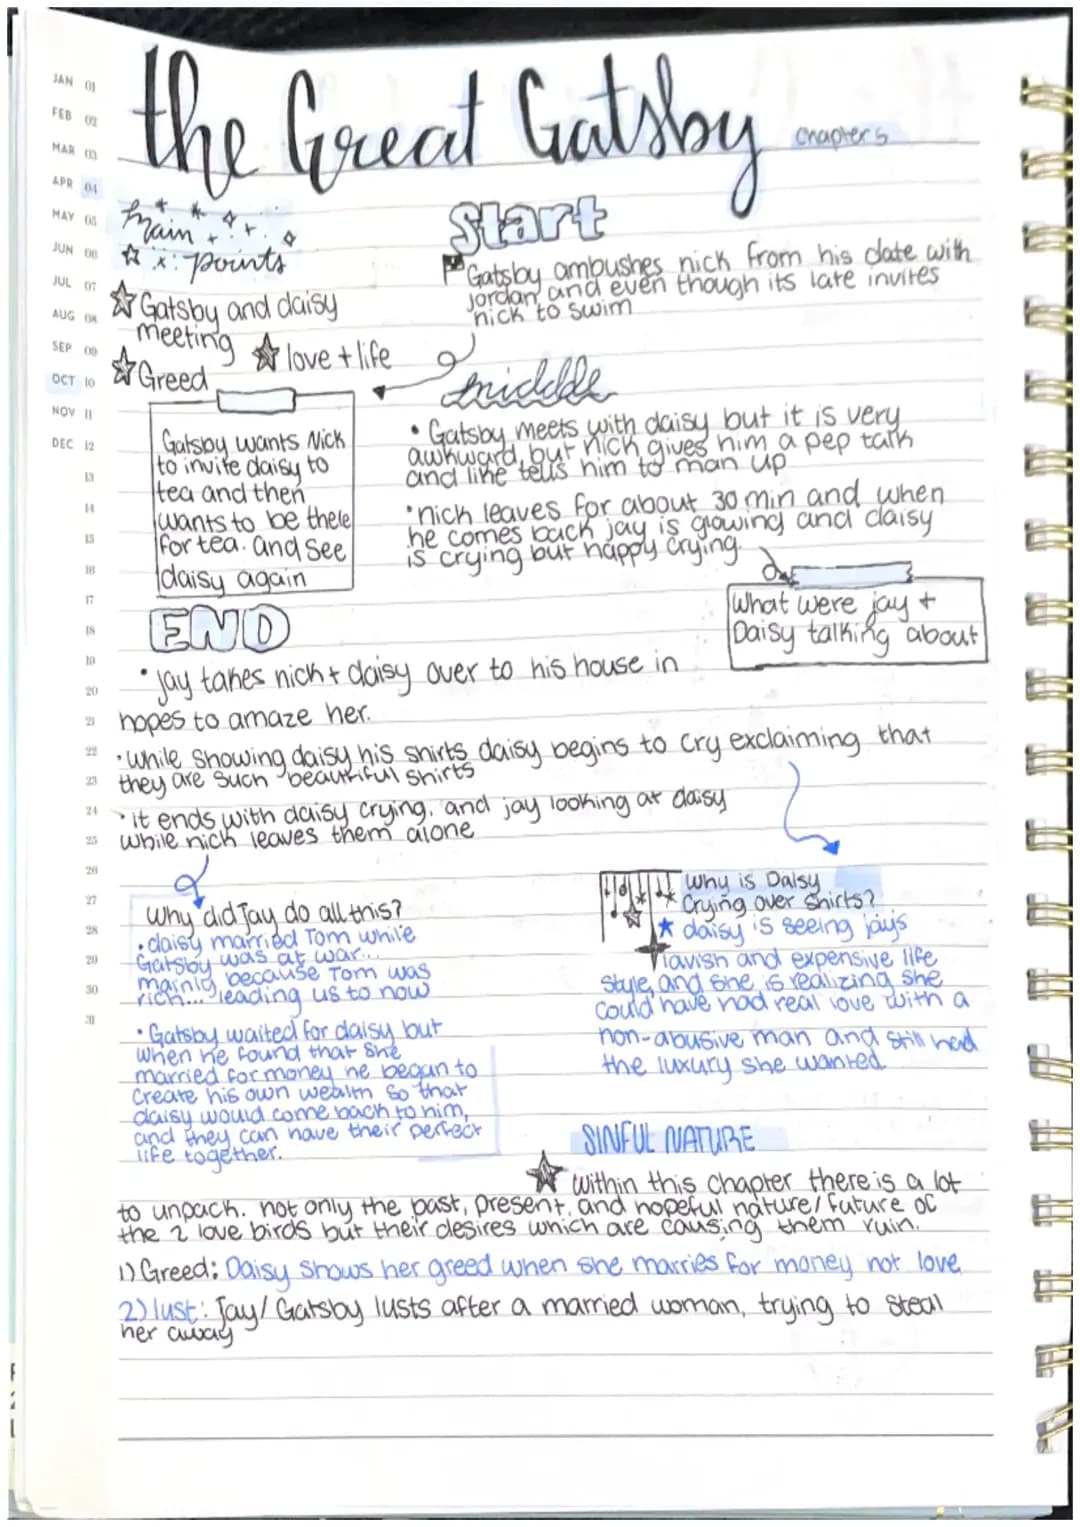 the Great Gatsby
chapter 5
JAN 01
FEB 02
MAR 03
APR 04
MAY 05
JUN 06
JUL 07
AUG 08
SEP 09
OCT 10
NOV 11
DEC 12
13
14
15
16
17
18
19
20
21
22
23
24
25
26
27
28
29
30
31
main
points
Gatsby and daisy
meeting
love + life
Greed
Start
Gatsby ambushes nick from his date with
jordan, and even though its late invites
nick to swim
Gatsby wants Nick
to invite daisy to
tea and then
wants to be there
for tea. and see
daisy again
middle
• Gatsby meets with daisy but it is very
awkward, but nick gives him a pep talk
and like tells him to man up
• nick leaves for about 30 min and when
he comes back jay is glowing and daisy
is crying but happy crying.
What were jay +
Daisy talking about
END
• jay takes nick + daisy over to his house in
hopes to amaze her.
• while showing daisy his shirts daisy begins to cry exclaiming that
they are such beautiful shirts
• it ends with daisy crying, and jay looking at daisy
while nick leaves them alone
why did Jay do all this?
• daisy married Tom while
Gatsby was at war...
mainly because Tom was
rich... leading us to now
• Gatsby waited for daisy but
when he found that she
married for money he began to
create his own wealth so that
daisy would come back to him,
and they can have their perfect
life together.
why is Daisy
crying over shirts?
daisy is seeing jay's
lavish and expensive life
style, and she is realizing she
could have had real love with a
non-abusive man and still had
the luxury she wanted
SINFUL NATURE
within this chapter there is a lot
to unpack. not only the past, present, and hopeful nature/future of
the 2 love birds but their desires which are causing them ruin.
1) Greed: Daisy shows her greed when she marries for money not love
2) lust: Jay/Gatsby lusts after a married woman, trying to steal
her away